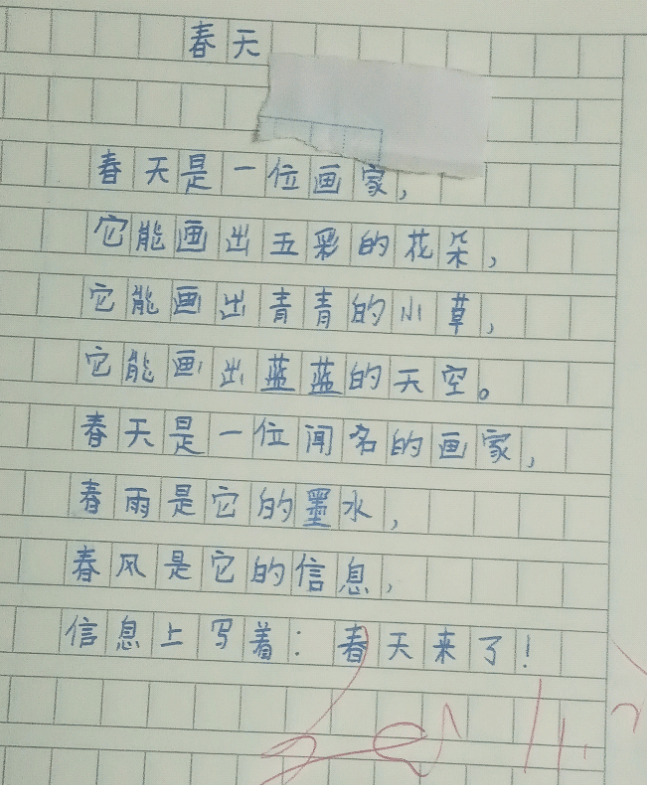 春天
春天是一位画家，
它能画出五彩的花朵，
它能画出青青的小草，
它能画出蓝蓝的天空。
春天是一位闻名的画家，
春雨是它的墨水，
春风是它的信息，
信息上写着：春天来了！